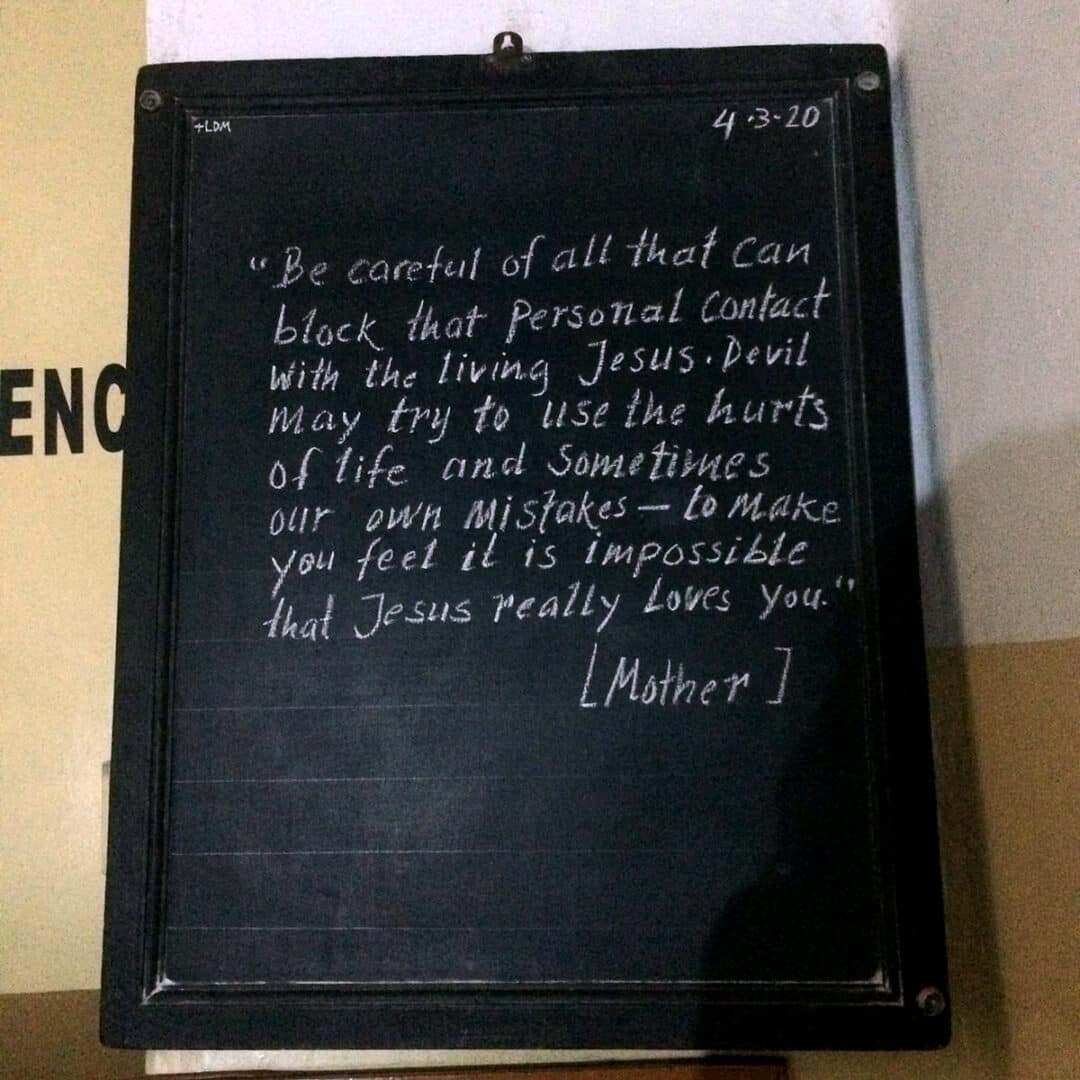 +LDM
4.3-20
"Be careful of all that can
block that personal contact
with the living Jesus. Devil
may try to use the hurts
of life and sometimes
our own mistakes — to make
you feel it is impossible
that Jesus really loves you."
[Mother]
ENC